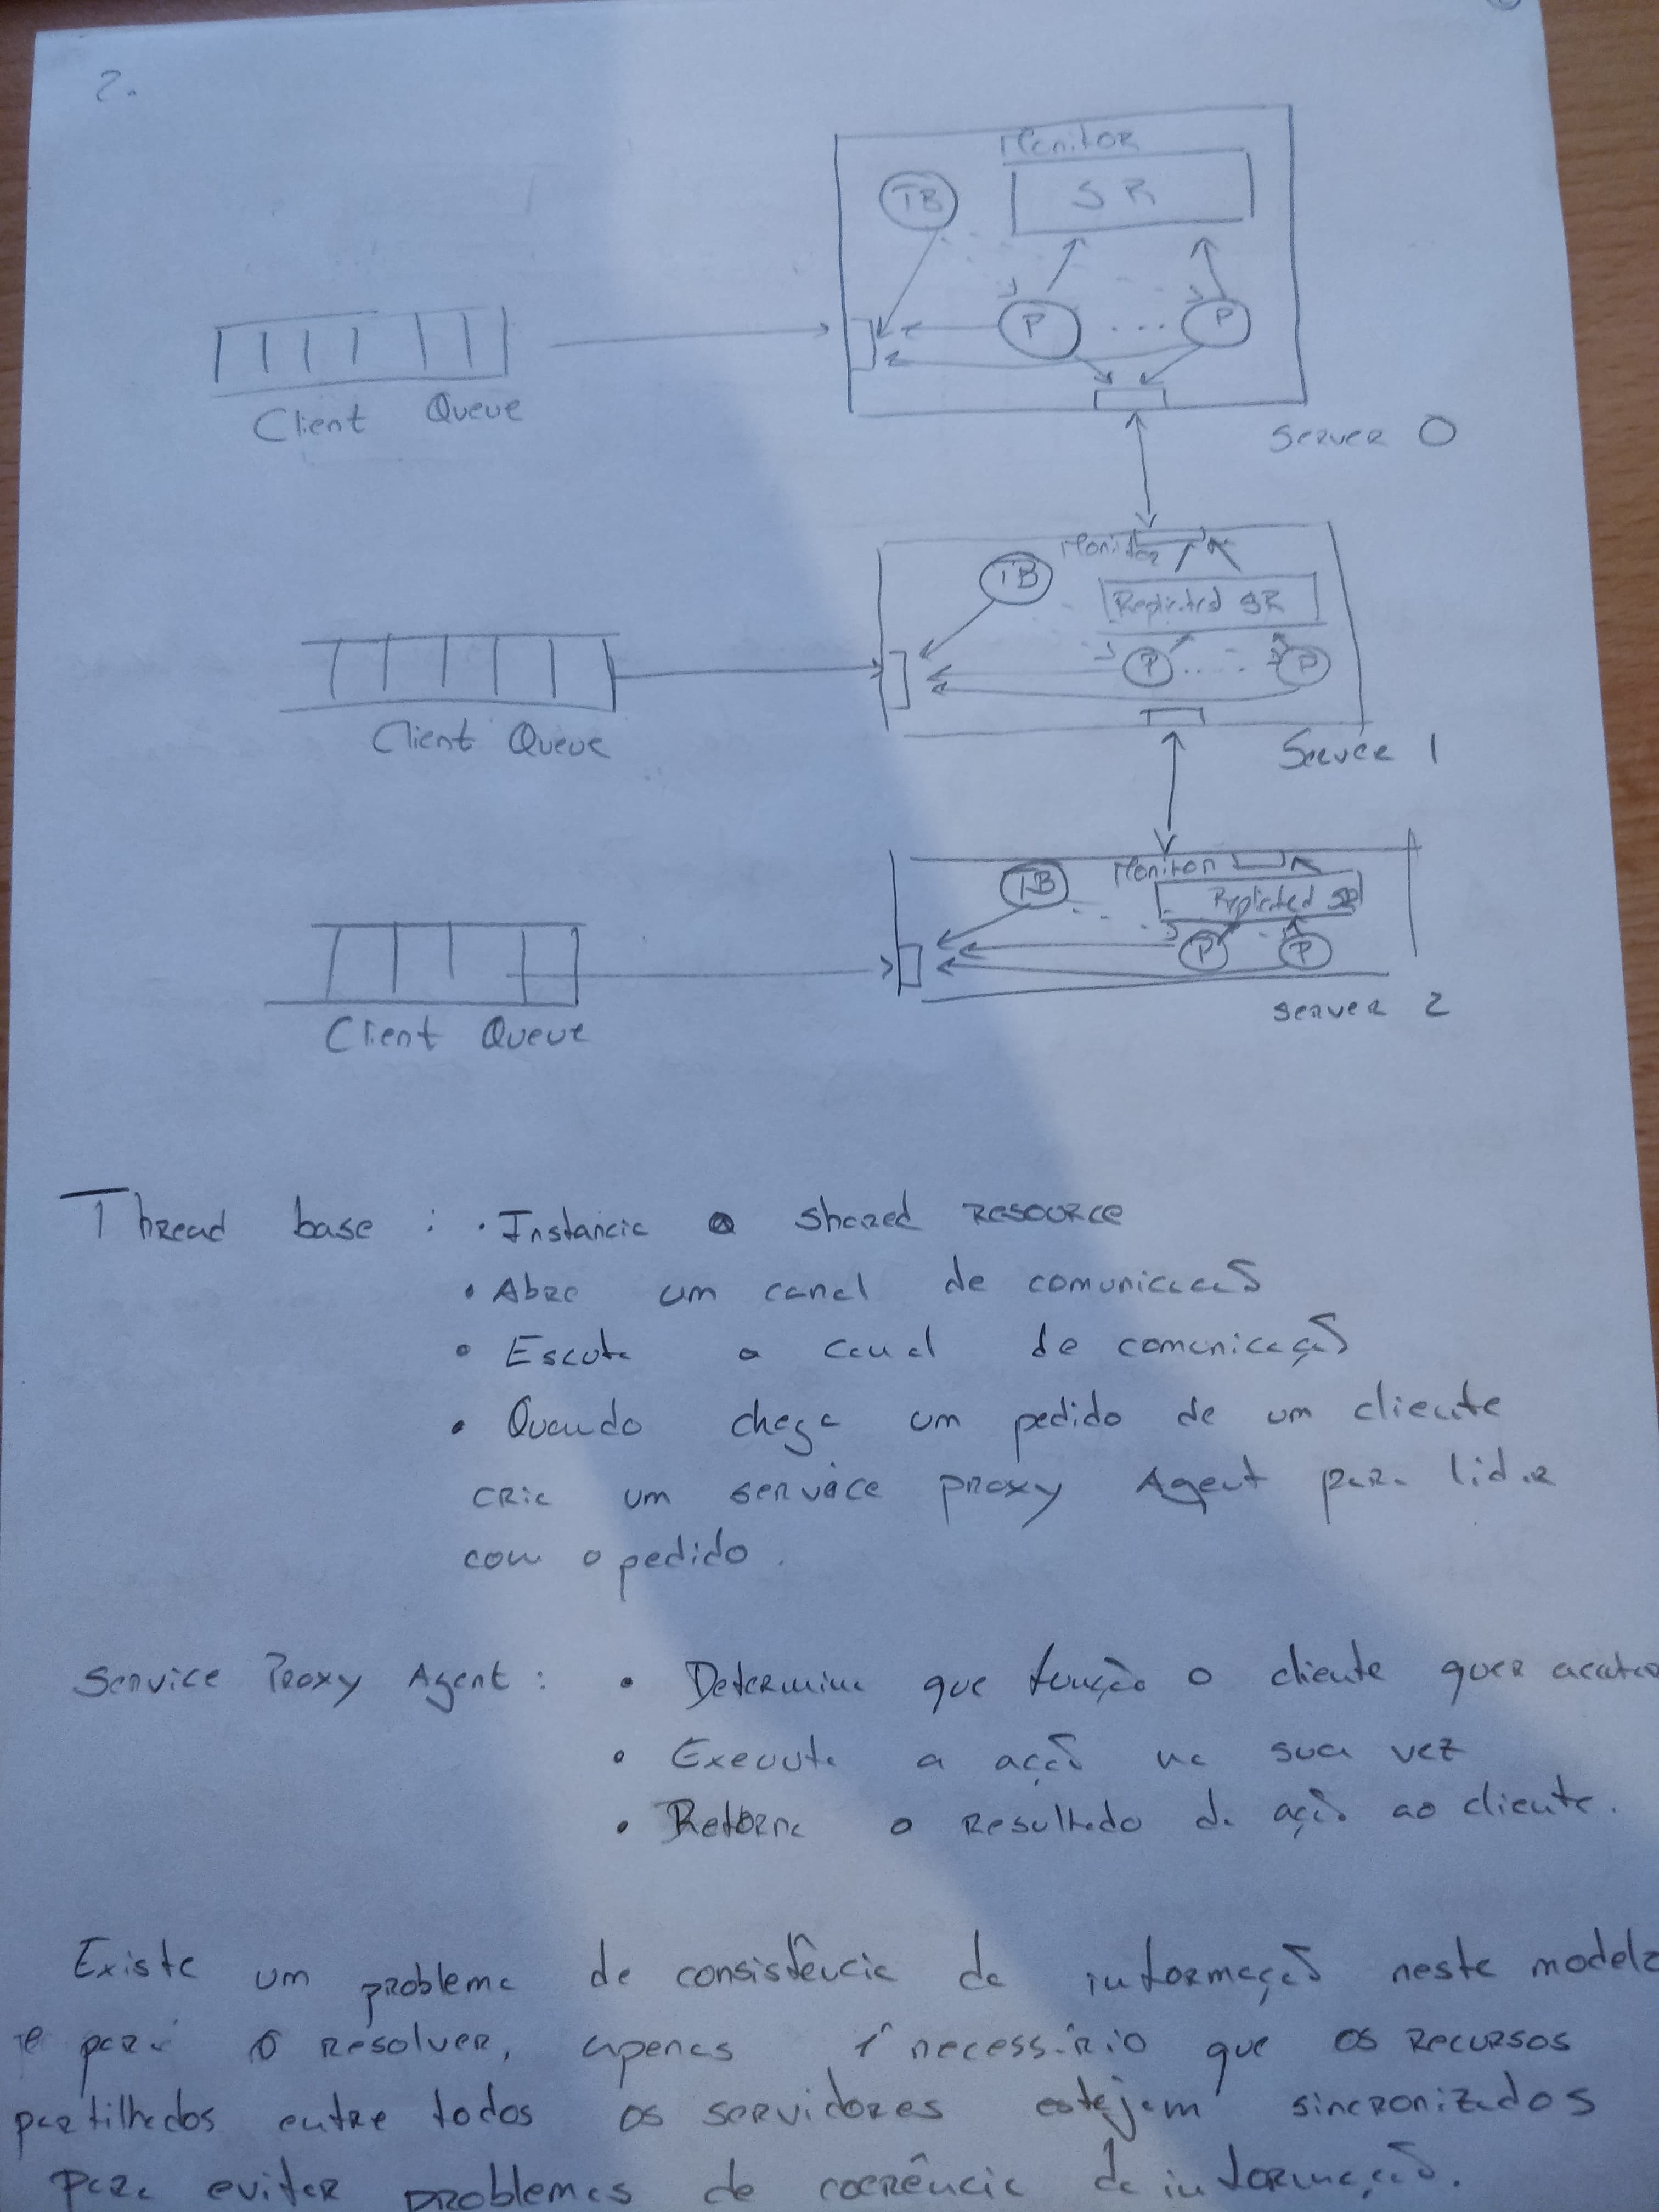 2.
Monitor
TB
SR
P
P
Client Queue
Server 0
Monitor
TB
Replicated SR
P
P
Client Queue
Server 1
Monitor
TB
Replicated SR
P
P
Client Queue
Server 2
Thread base : • Instancia o shared resource
• Abre um canal de comunicação
• Escuta o canal de comunicação
• Quando chega um pedido de um cliente
cria um service proxy Agent para lidar
com o pedido.
Service Proxy Agent : • Determina que função o cliente quer
• Executa a ação na sua vez
• Retorna o resultado da ação ao cliente.
Existe um problema de consistência da informação neste modelo
e para o resolver, apenas é necessário que os recursos
partilhados entre todos os servidores estejam sincronizados
para evitar problemas de coerência da informação.